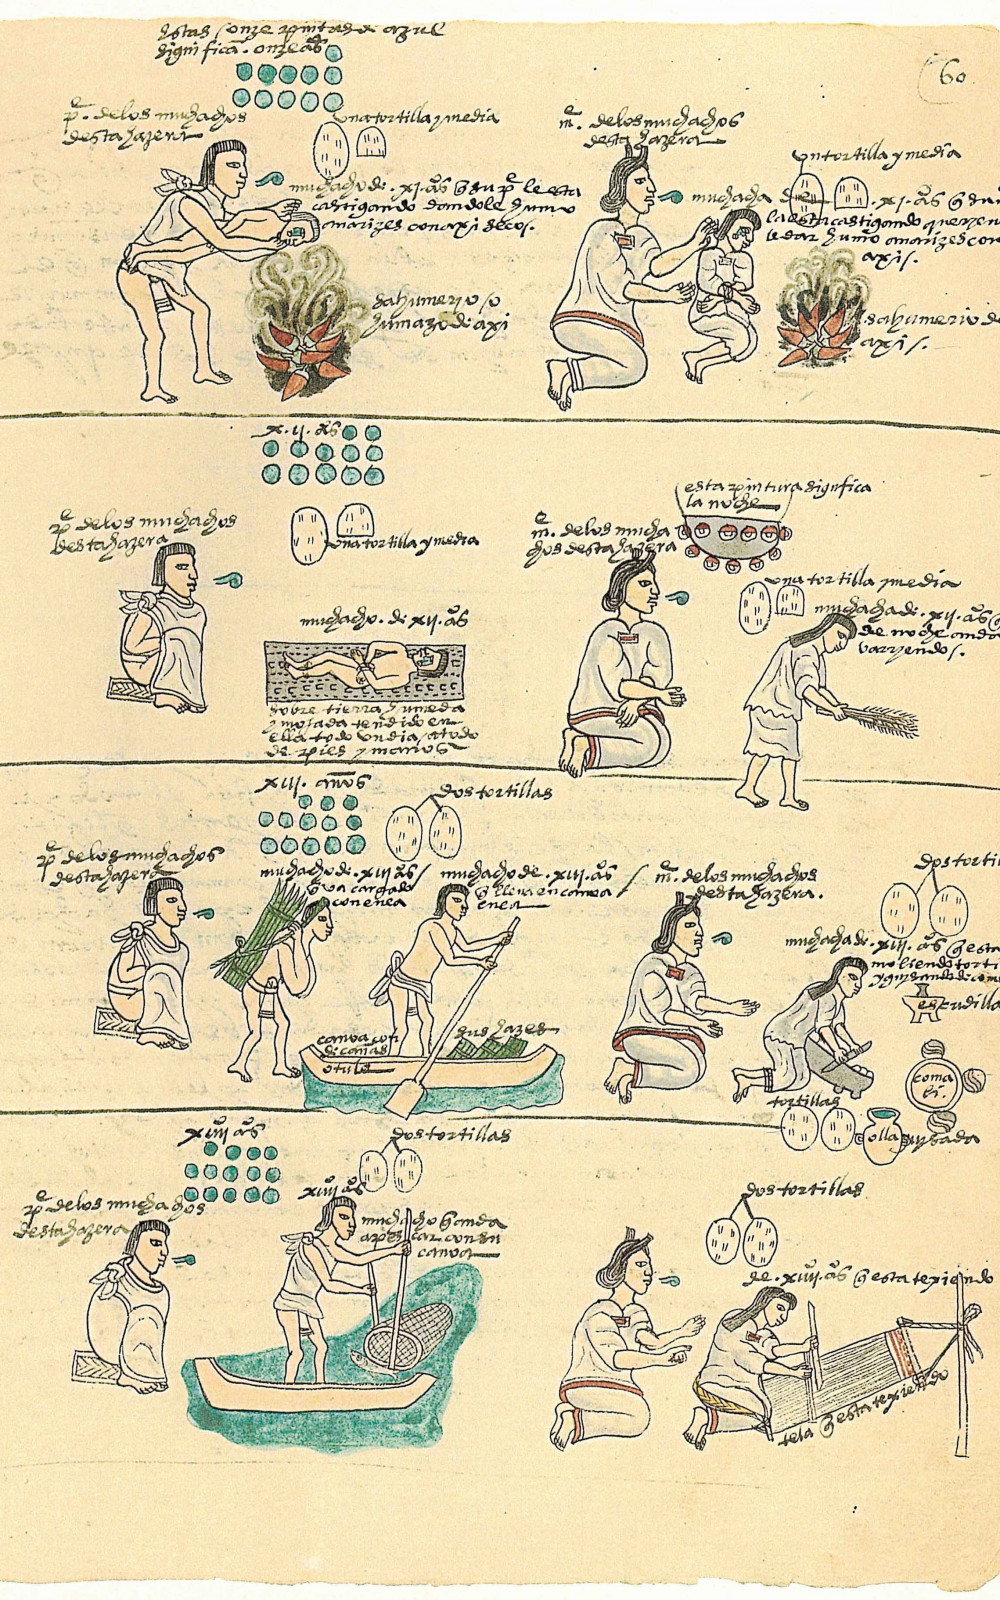 estas onze pintas de azul
significā. onze aōs
60
pᵉ. delos muchachos
desta hazera
una tortilla y media
muchacho de .xi. aōs q̄ su pᵉ le esta
castigando dandole humo
a narizes con axi secos.
sahumerio o
humazo de axi
mᵉ. delos muchachos
desta hazera
un tortilla y media
muchacha de .xi. aōs q̄ su
la esta castigando
le dar humo a narizes con
axi/.
sahumerio de
axi/.
x.ii. aōs
pᵉ delos muchachos
desta hazera
una tortilla y media
muchacho. de xii. aōs
sobre tierra humeda
y mojada tendido en
ella todo un dia, atado
de pies y manos
esta pintura significa
la noche
mᵉ. delos mucha
chos desta hazera
una tortilla y media
muchacha de .xii. aōs q̄
de noche anda
varriendo/.
xiii. años
dos tortillas
pᵉ delos muchachos
desta hazera
muchacho de .xiii. aōs/
q̄ va cargado
con enea
muchacho de .xiii. aōs
q̄ lleva en canoa
enea
canoa con
de cañas
o tule
sus hazes
mᵉ. delos muchachos
desta hazera.
dos torti
muchacha de .xiii. aōs q̄ esta
moliendo torti
y guisando de com
escudilla
coma
li.
tortillas
olla
guisada
xiiii aōs
dos tortillas
pᵉ delos muchachos
desta hazera
xiiii aōs
muchacho q̄ anda
a pescar con su
canoa
dos tortillas
de .xiiii. aōs q̄ esta texiendo
tela q̄ esta texiendo